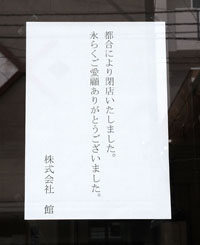 都合により閉店いたしました。
永らくご愛顧ありがとうございました。
株式会社 館